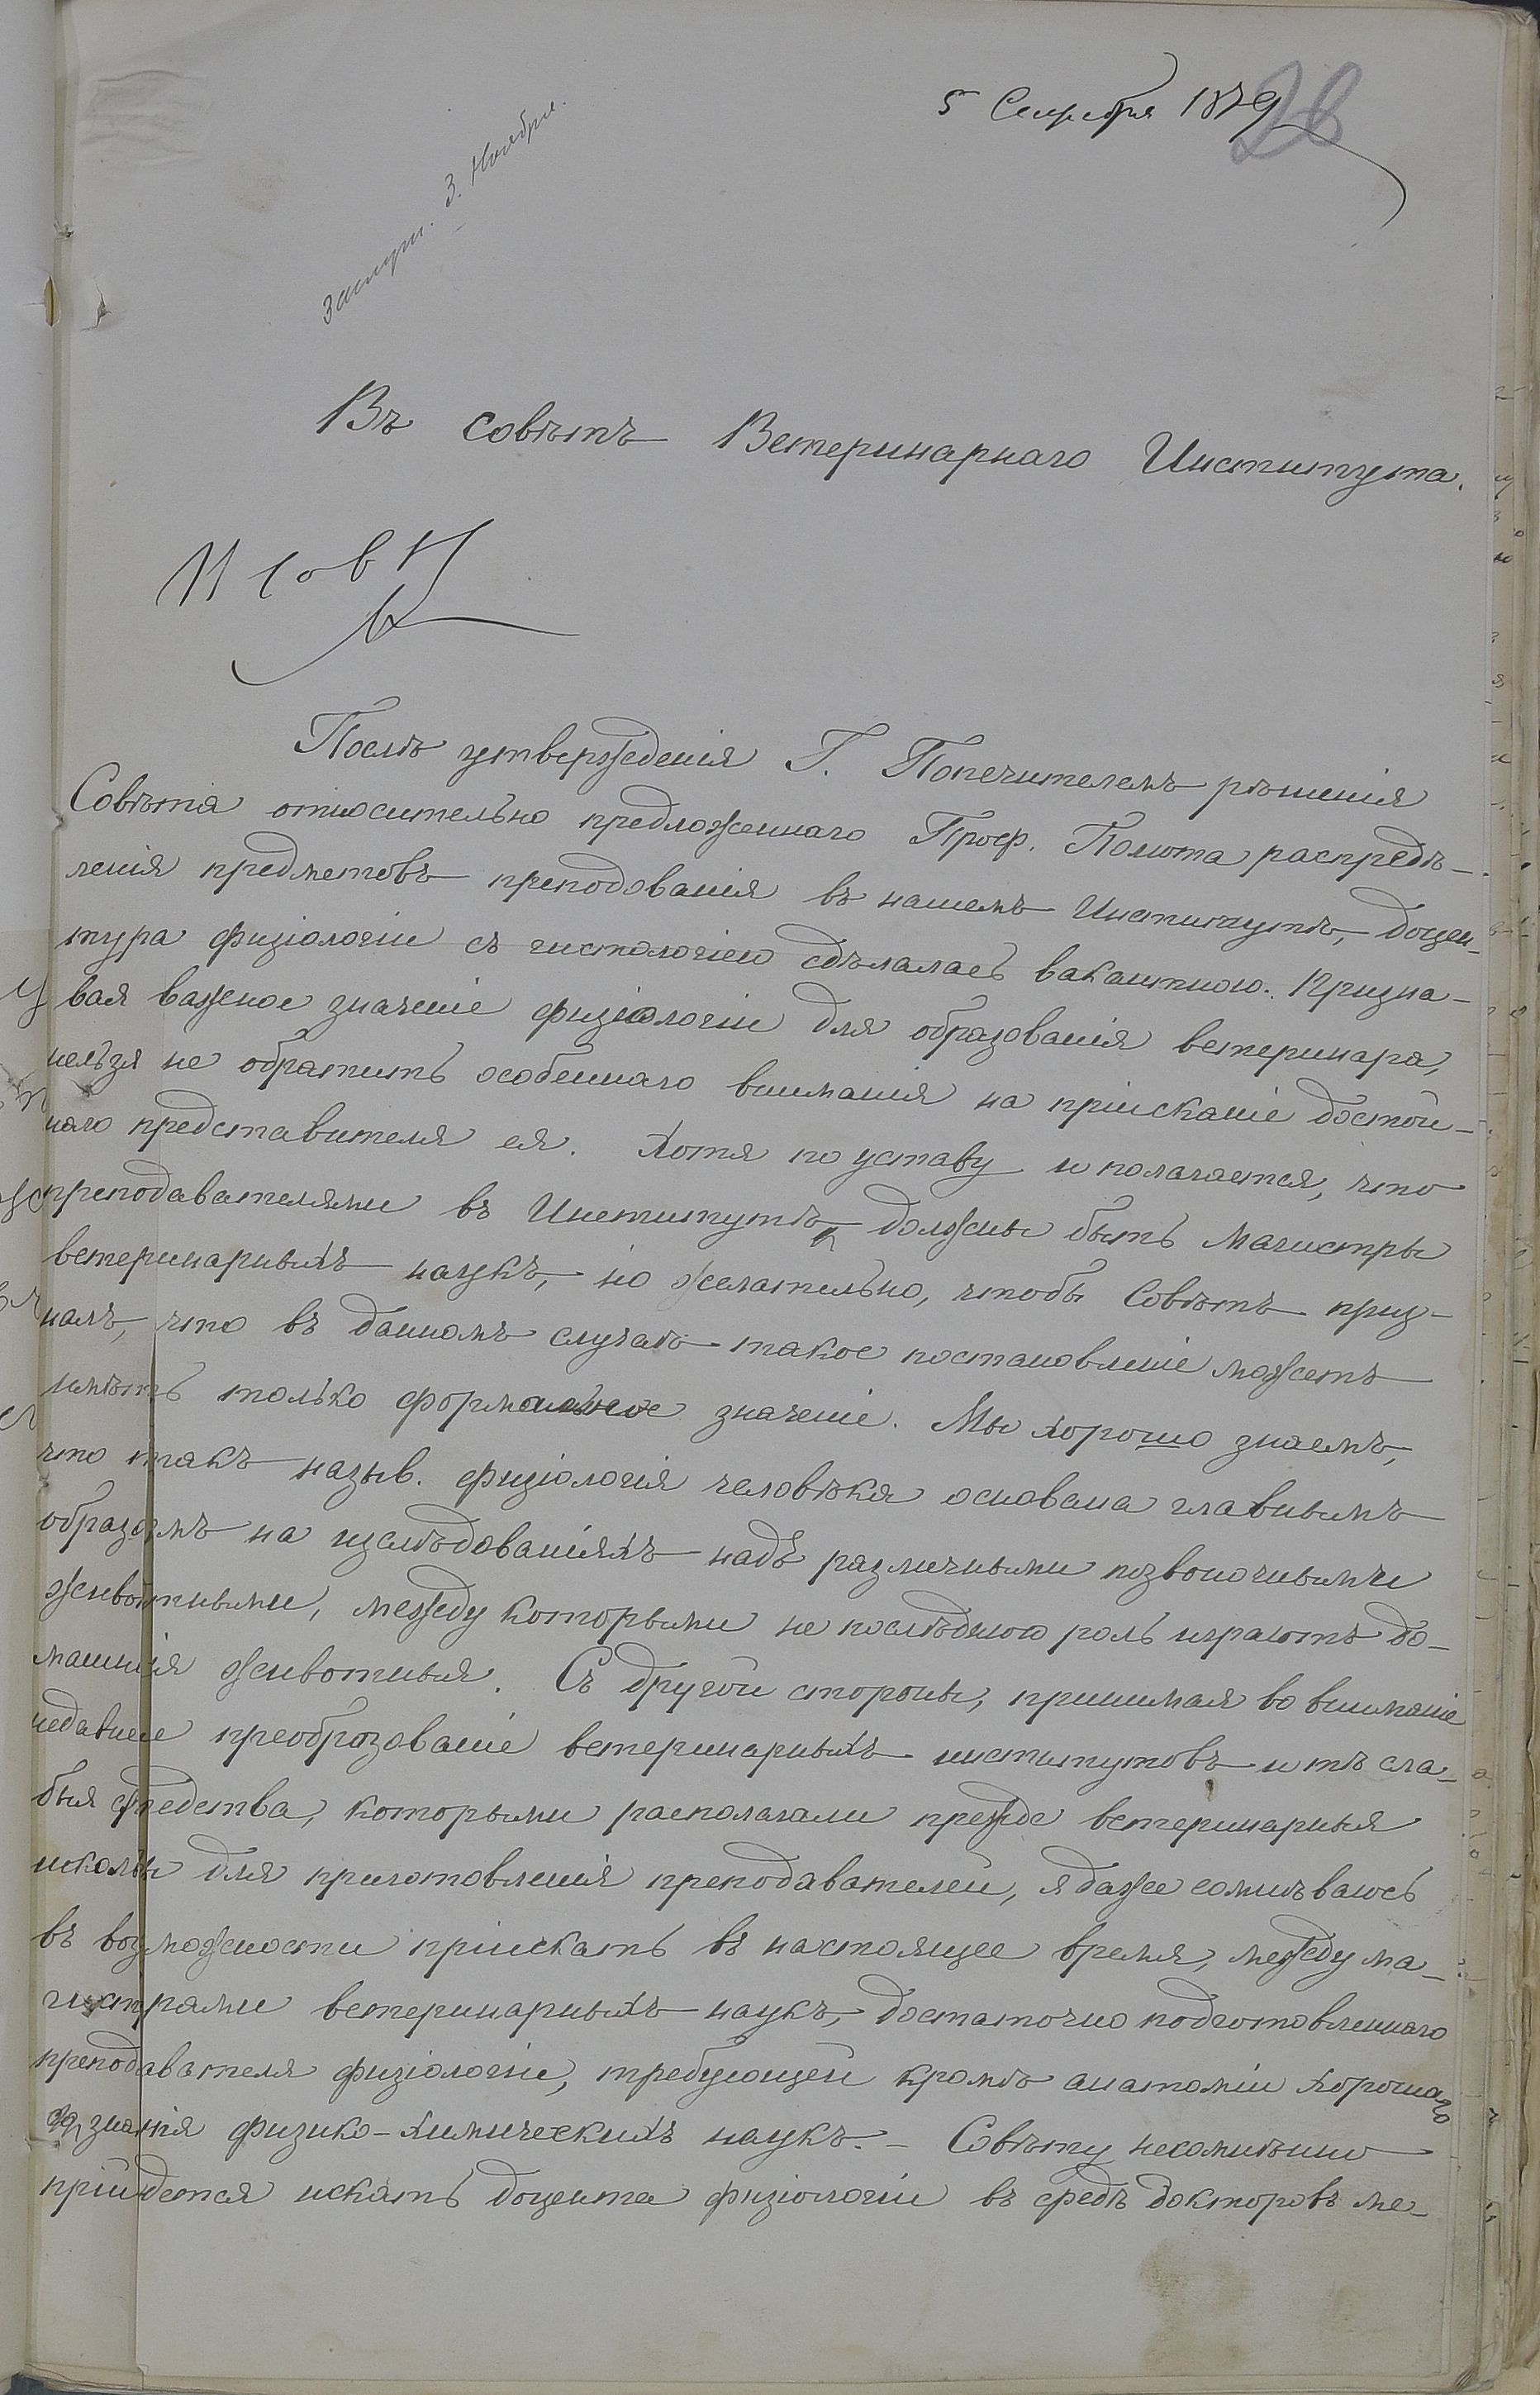 5 Сентября 1879
28
3. Ноября.
Въ Совѣтъ Ветеринарнаго Института.
Послѣ утвержденія Г. Попечителемъ рѣшенія
Совѣта относительно предложеннаго Проф. Полюта распредѣ-
ленія предметовъ преподованія въ нашемъ Институтѣ, доцен-
тура физіологіи съ гистологіею сдѣлалась вакантною. Призна-
вая важное значеніе физіологіи для образованія ветеринара,
нельзя не обратить особеннаго вниманія на пріисканіе достой-
наго представителя ея. Хотя по уставу и полагается, что
преподавателями въ Институтѣ должны быть магистры
ветеринарныхъ наукъ, но желательно, чтобы Совѣтъ приз-
налъ, что въ данномъ случаѣ такое постановленіе можетъ
имѣть только формальное значеніе. Мы хорошо знаемъ,
что такъ назыв. физіологія человѣка основана главнымъ
образомъ на изслѣдованіяхъ надъ различными позвоночными
животными, между которыми не послѣднюю роль играютъ до-
машнія животныя. Съ другой стороны, принимая во вниманіе
недавнее преоброзованіе ветеринарныхъ институтовъ и тѣ сла-
быя средства, которыми располагали прежде ветеринарныя
школы для приготовленія преподавателей, я даже сомнѣваюсь
въ возможности пріискать въ настоящее время, между ма-
гистрами ветеринарныхъ наукъ, достаточно подготовленнаго
преподавателя физіологіи, требующей кромѣ анатоміи хорошаго
знанія физико-химическихъ наукъ. – Совѣту несомнѣнно
прійдется искать доцента физіологіи въ средѣ докторовъ ме-